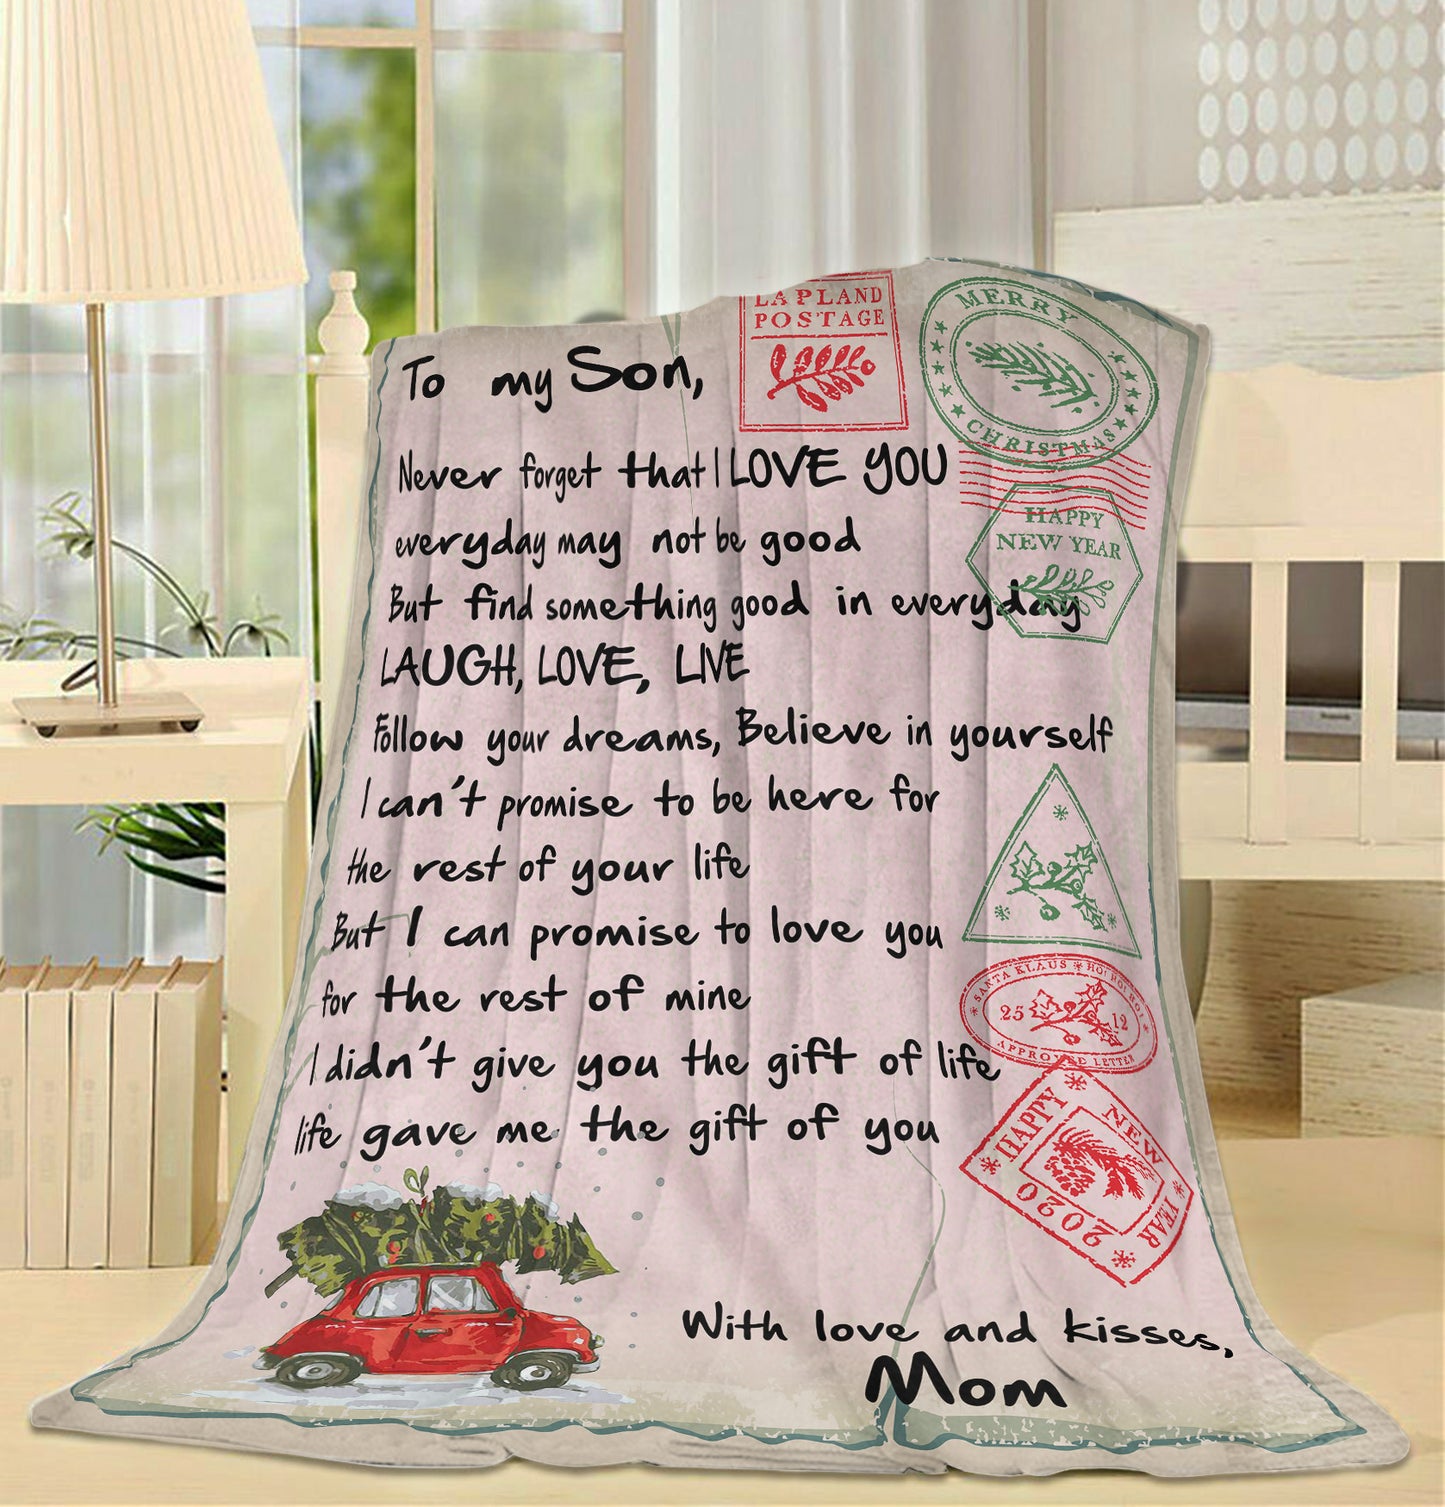 LAPLAND
POSTAGE
MERRY
CHRISTMAS
To my Son,
Never forget that I LOVE YOU
HAPPY
NEW YEAR
everyday may not be good
But find something good in everyday
LAUGH, LOVE, LIVE
Follow your dreams, Believe in yourself
I can't promise to be here for
the rest of your life
But I can promise to love you
for the rest of mine
SANTA KLAUS * HO! HO! HO!
25 12
APPROVED LETTER
I didn't give you the gift of life
life gave me the gift of you
HAPPY NEW YEAR 2020
With love and kisses,
Mom